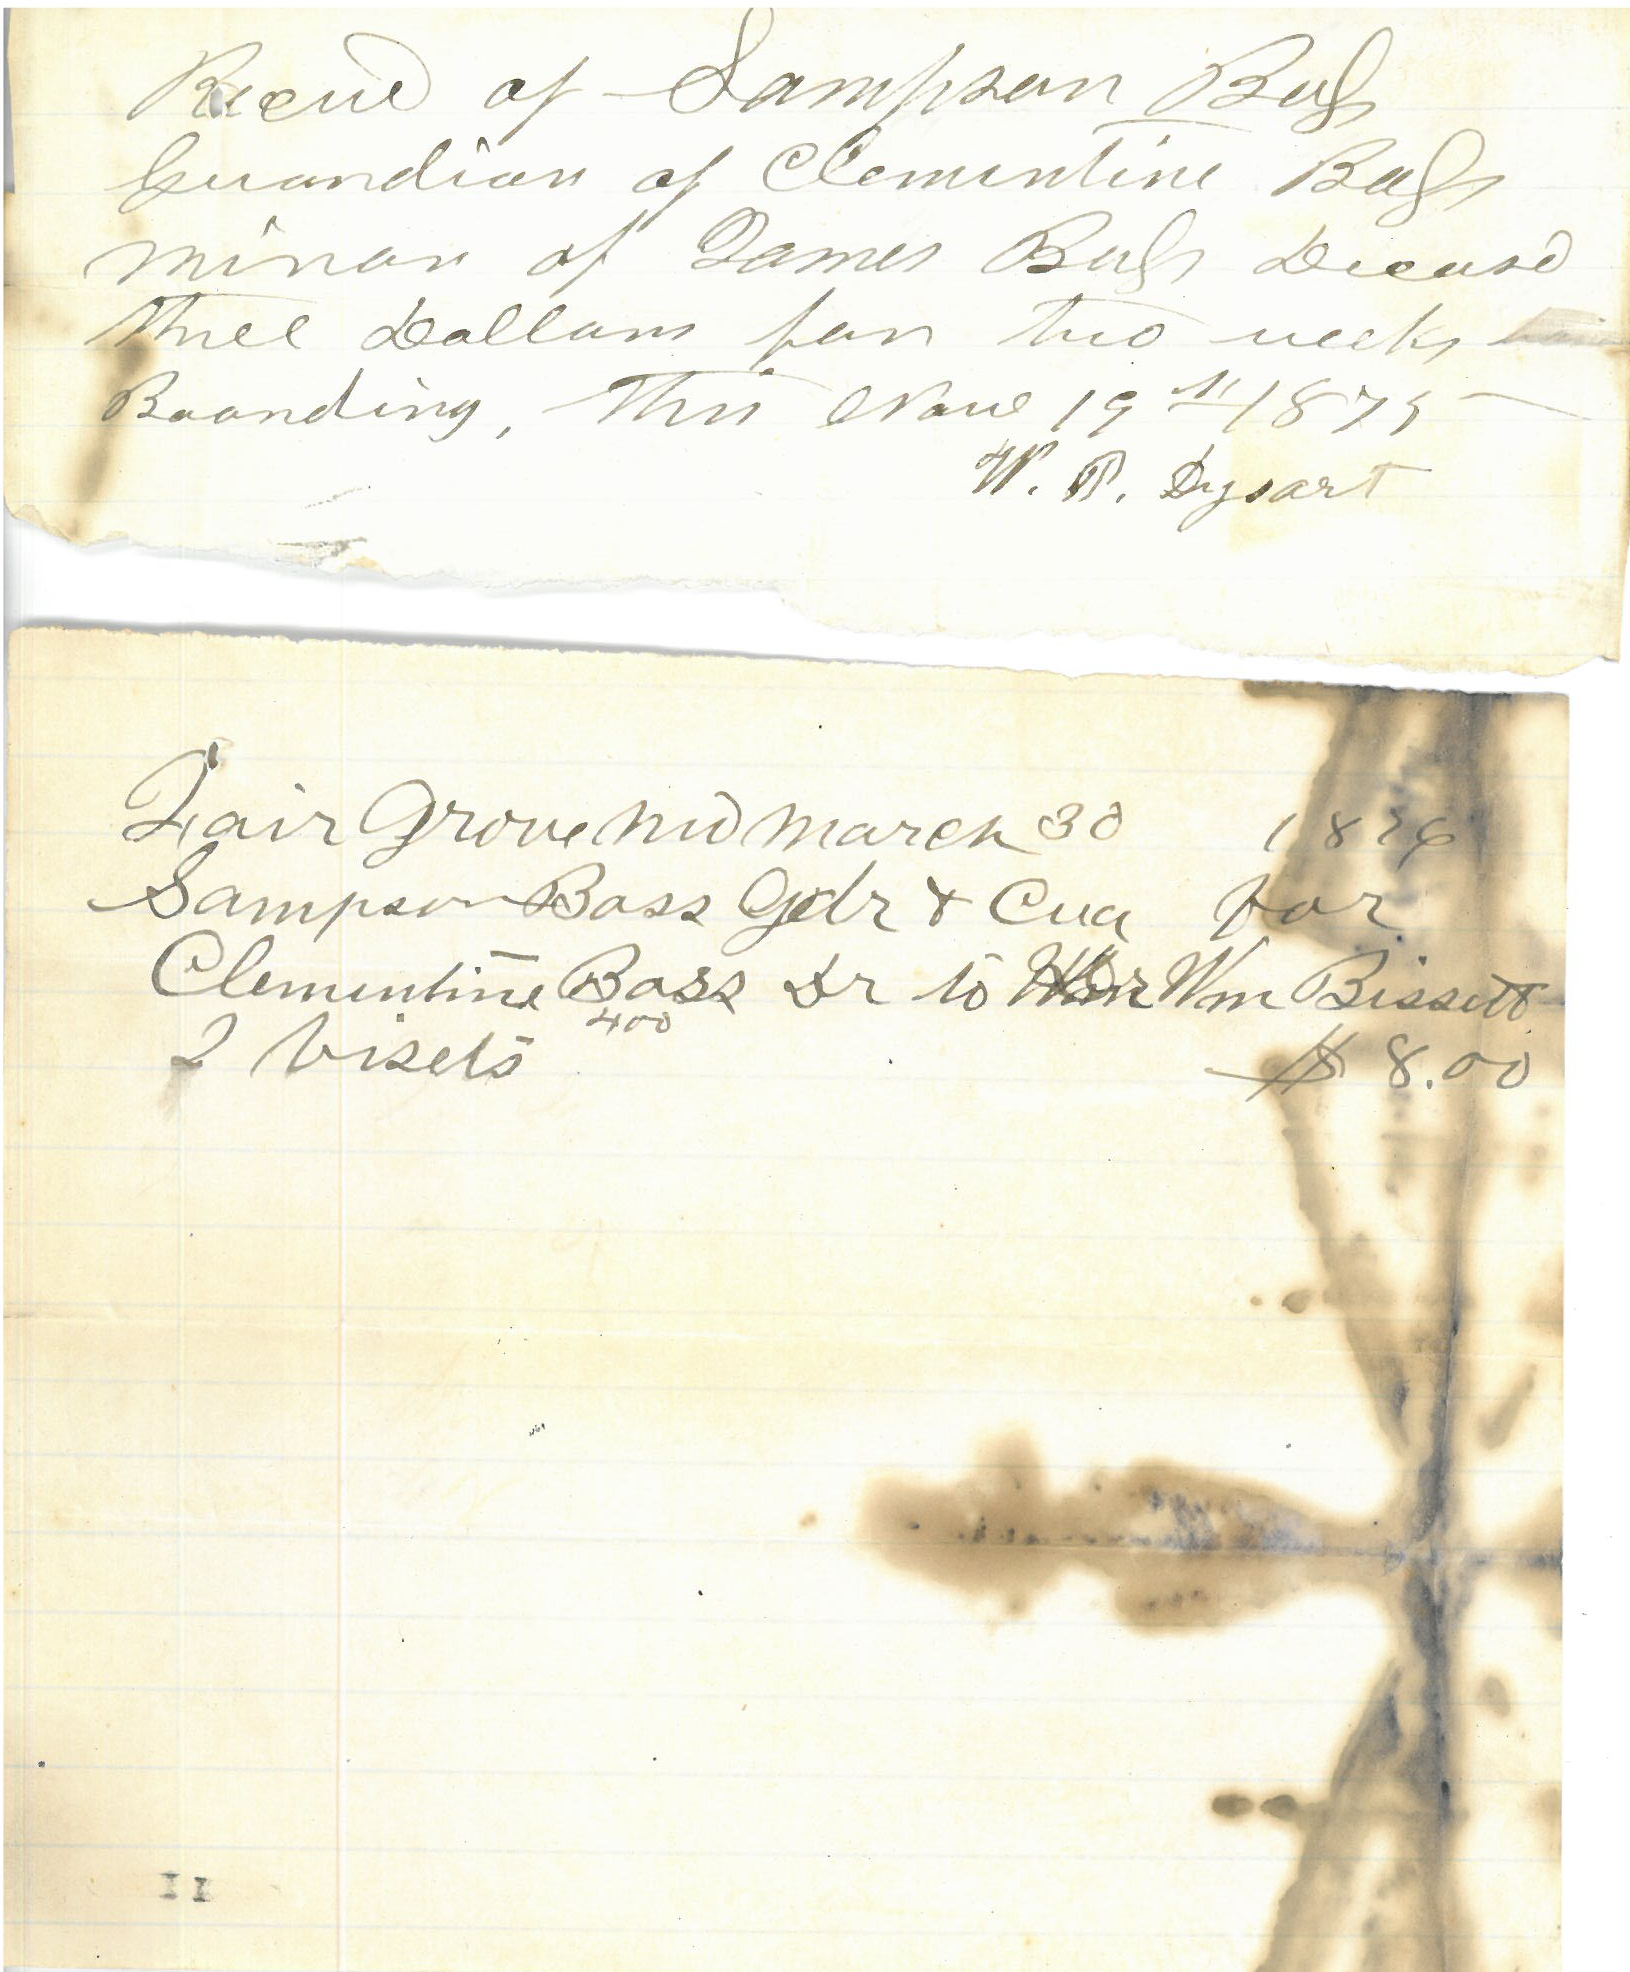 Recud of Sampson Bass
Guardian of Clementine Bass
minor of James Bass Deceasd
Three Dollars for two weeks
Boarding, This Nov 19th 1875
W. P. Dysart
Fair Grove Mo March 30 1876
Sampson Bass Gdr & Cua for
Clementine Bass Dr to Wm Bissett
400
2 Visets $ 8.00
11